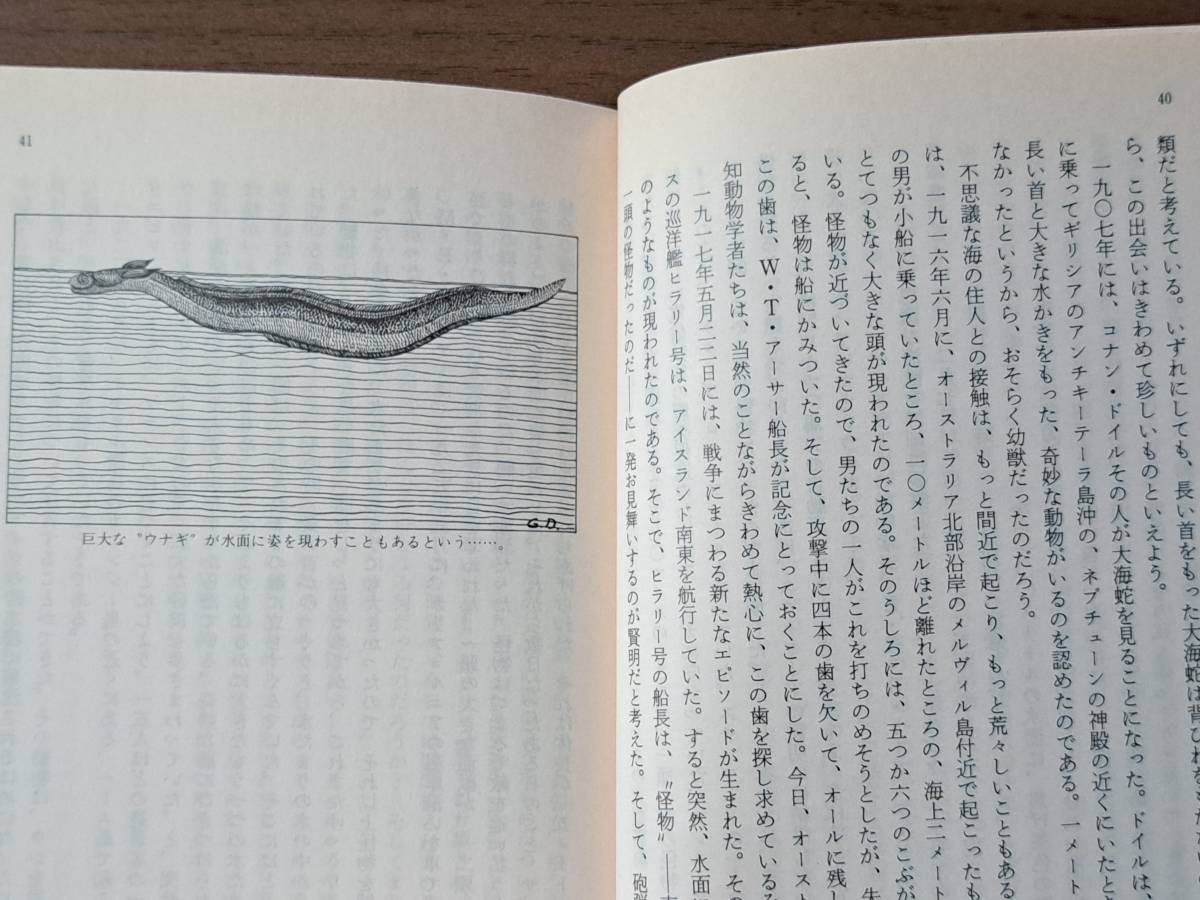 40
類だと考えている。いずれにしても、長い首をもった大海蛇は背びれを
ら、この出会いはきわめて珍しいものといえよう。
一九〇七年には、コナン・ドイルその人が大海蛇を見ることになった。ドイルは、
に乗ってギリシアのアンチキーテーラ島沖の、ネプチューンの神殿の近くにいたと
長い首と大きな水かきをもった、奇妙な動物がいるのを認めたのである。一メート
なかったというから、おそらく幼獣だったのだろう。
不思議な海の住人との接触は、もっと間近で起こり、もっと荒々しいこともある
は、一九一六年六月に、オーストラリア北部沿岸のメルヴィル島付近で起こったも
の男が小船に乗っていたところ、一〇メートルほど離れたところの、海上二メート
とてつもなく大きな頭が現われたのである。そのうしろには、五つか六つのこぶが
いる。怪物が近づいてきたので、男たちの一人がこれを打ちのめそうとしたが、失
ると、怪物は船にかみついた。そして、攻撃中に四本の歯を欠いて、オールに残し
この歯は、W・T・アーサー船長が記念にとっておくことにした。今日、オースト
知動物学者たちは、当然のことながらきわめて熱心に、この歯を探し求めている
一九一七年五月二二日には、戦争にまつわる新たなエピソードが生まれた。その
スの巡洋艦ヒラリー号は、アイスランド南東を航行していた。すると突然、水面に
のようなものが現われたのである。そこで、ヒラリー号の船長は、〝怪物〟――
一頭の怪物だったのだ――に一発お見舞いするのが賢明だと考えた。そして、砲弾
41
G.D.
巨大な〝ウナギ〟が水面に姿を現わすこともあるという……。